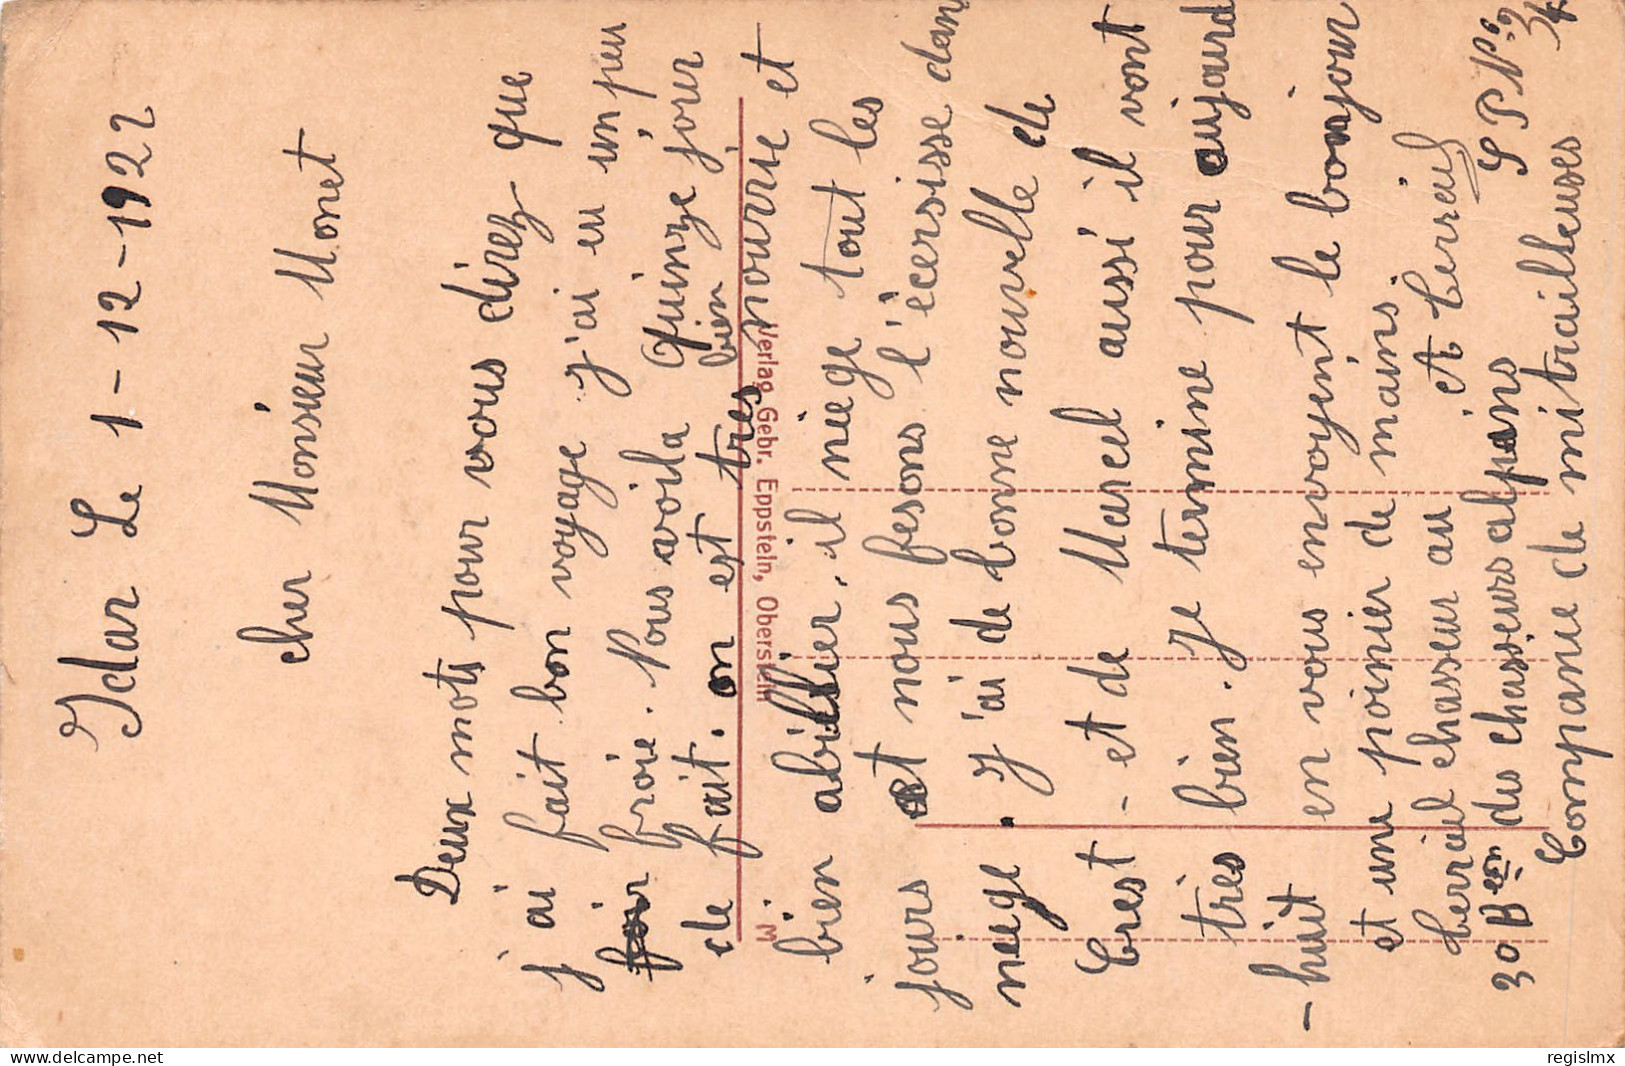 Idar Le 1-12-1922
cher Monsieur Monet
Deux mots pour vous direz que
j'ai fait bon voyage j'ai eu un peu
froie. Nous voila quinze jour
de fait. on est tres bien nourrie et
bien abillier, il niege tout les
jours et nous fesons l'écersisse dans
neige. J'ai de bonne nouvelle de
Crest - et de Marcel aussi il vont
très bien. Je termine pour aujourd
-huit en vous envoyent le bonjour
et une poinier de mains
et
chasseur au
30 Beon des chasseurs alpins SPN°
Companie de mitrailleuses
M Verlag Gebr. Eppstein, Oberstein
regislmx
delcampe.net